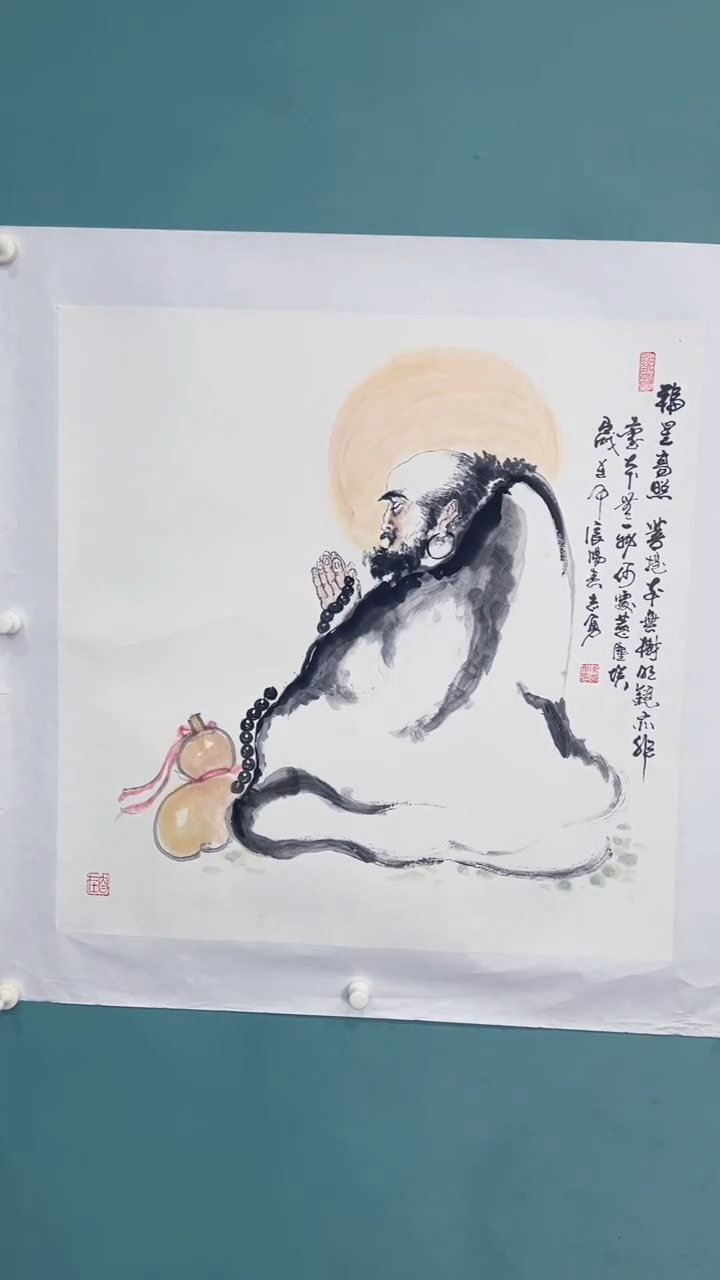 福星高照 菩提本無樹明鏡亦非
臺本無一物何處惹塵埃
歲在甲辰陽春志勇